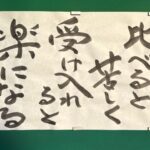 比べると
苦しく
受け入れ
ると
楽になる